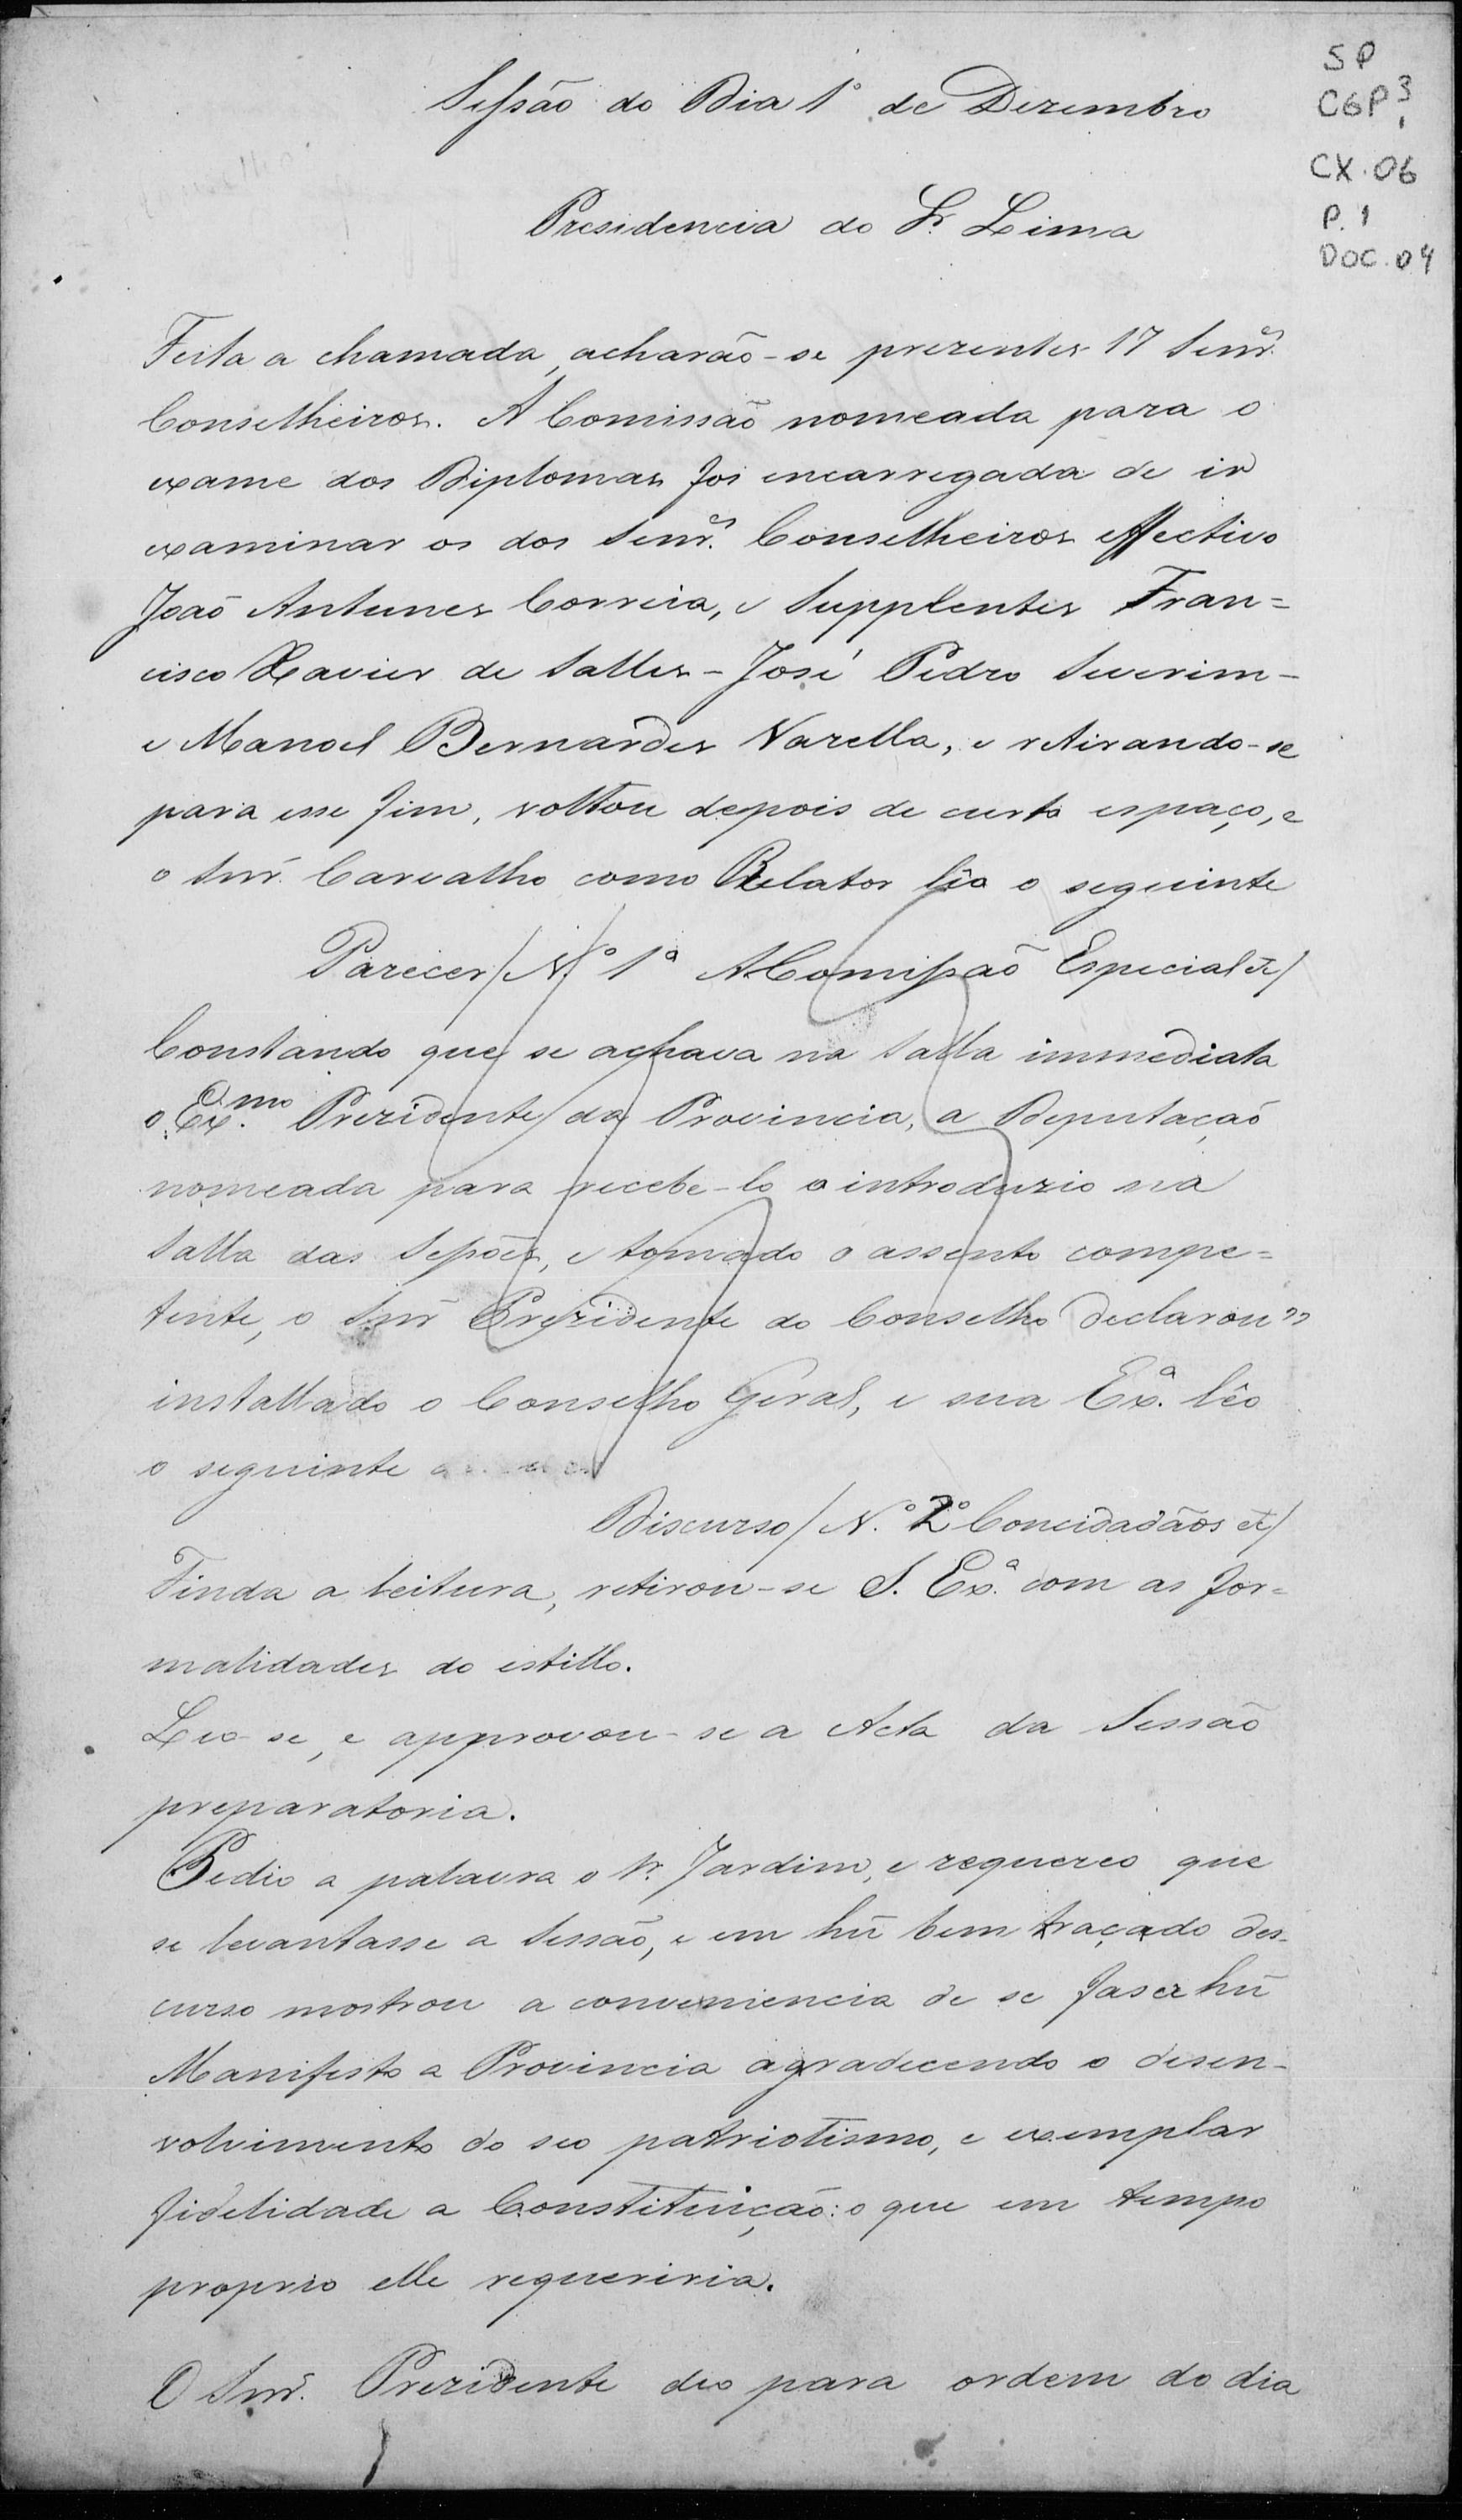 SP
CGP3,
CX.06
P.1
DOC.04
Sessão do Dia 1º de Dezembro
Presidencia do Sr. Lima
Feita a chamada, acharão-se prezentes 17 Senr.es
Conselheiros. A Comissão nomeada para o
exame dos Diplomas foi encarregada de ir
examinar os dos Senr.es Conselheiros effectivo
João Antunes Correia, e Supplentes Fran=
cisco Xavier de Salles - José Pedro Severim -
e Manoel Bernardes Varella, e retirando-se
para esse fim, voltou depois de curto espaço, e
o Snr. Carvalho como Relator lêo o seguinte
Parecer/ N.º 1º A Comissão Especial &/
Constando que se achava na Salla immediata
o Ex.mo Prezidente da Provincia, a Deputação
nomeada para recebe-lo o introduzio na
Salla das Sessões, e tomado o assento compe=
tente, o Snr Prezidente do Conselho declarou"
installado o Conselho Geral, e sua Ex.ª lêo
o seguinte
Discurso/ N.º 2º Concidadãos &/
Finda a leitura, retirou-se S. Ex.ª com as for=
malidades do estillo.
Leo-se, e approvou-se a Acta da Sessão
preparatoria.
Pedio a palavra o Sr. Jardim, e requereo que
se levantasse a Sessão, e em hũ bem traçado des-
curso mostrou a conveniencia de se faser hũ
Manifesto a Provincia agradecendo o desen-
volvimento do seo patriotismo, e exemplar
fidelidade a Constituição: o que em tempo
proprio elle requereria.
O Snr. Prezidente deo para ordem do dia